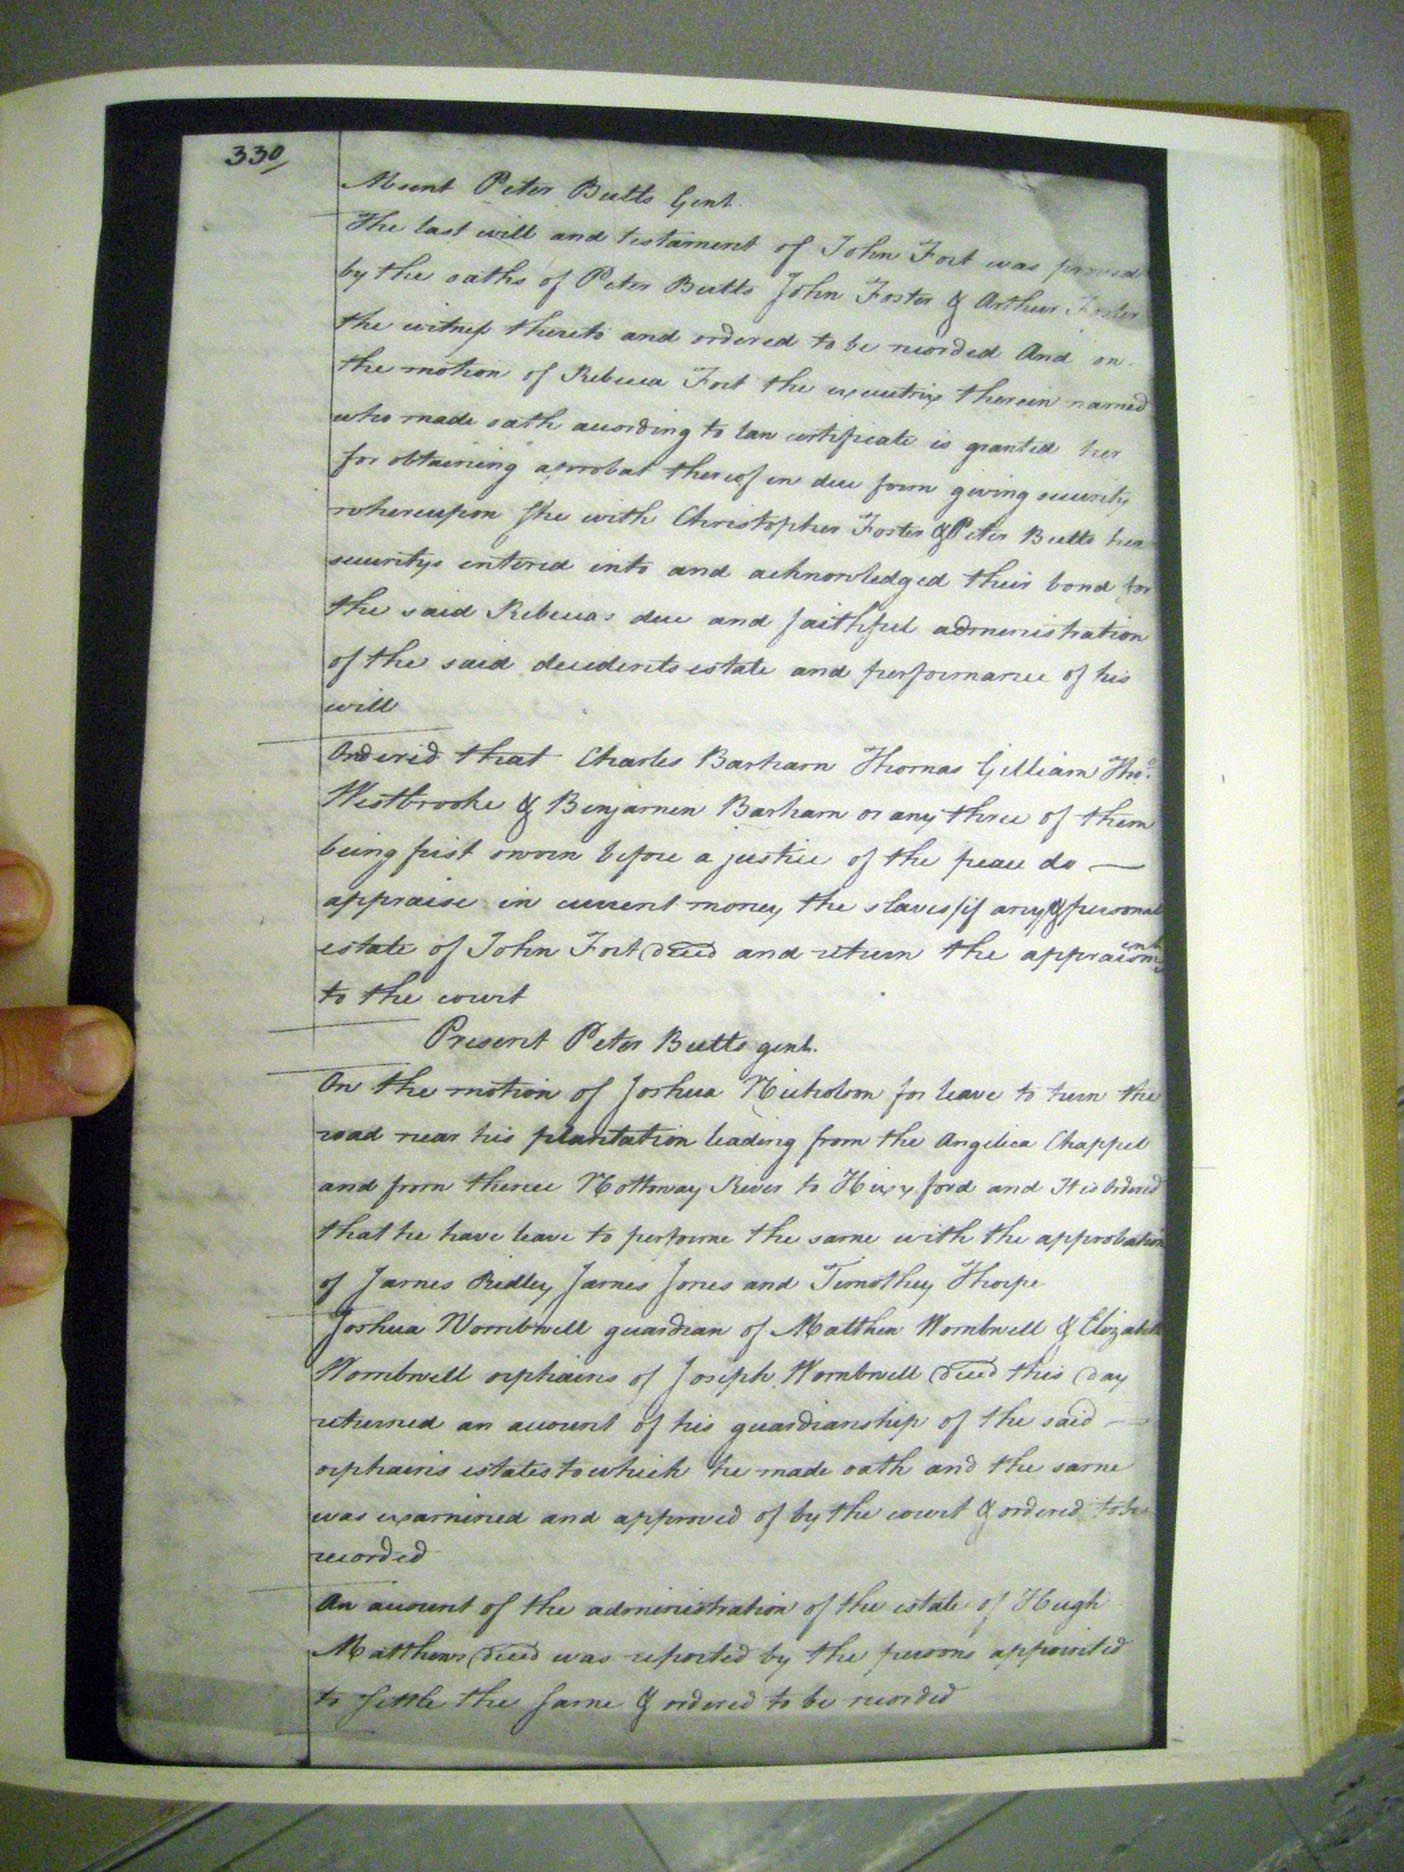 330/
Absent Peter Butts Gent.
The last will and testament of John Fort was proved
by the oaths of Peter Butts John Foster & Arthur Foster
the witness thereto and ordered to be recorded And on
the motion of Rebecca Fort the executrix therein named
who made oath according to law certificate is granted her
for obtaining aprobat thereof in due form giving security
whereupon she with Christopher Foster & Peter Butts her
securitys entered into and acknowledged their bond for
the said Rebeccas due and faithful administration
of the said decedents estate and performance of his
will
Ordered that Charles Barham Thomas Gilliam Tho.s
Westbrooke & Benjamen Barham or any three of them
being first sworn before a justice of the peace do —
appraise in current money the slaves (if any) & personal
estate of John Fort deced and return the appraisment
to the court
Present Peter Butts gent.
On the motion of Joshua Nicholson for leave to turn the
road near his plantation leading from the Angelica Chappel
and from thence Nottoway River to Hixx ford and It is Ordered
that he have leave to performe the same with the approbation
of James Ridley James Jones and Timothey Thorpe
Joshua Wombwell guardian of Matthew Wombwell & Elizabeth
Wombwell orphains of Joseph Wombwell deced this day
returned an account of his guardianship of the said —
orphains estates to which he made oath and the same
was examined and approved of by the court & ordered to be
recorded
An account of the administration of the estate of Hugh
Matthews deced was reported by the persons appointed
to settle the same & ordered to be recorded